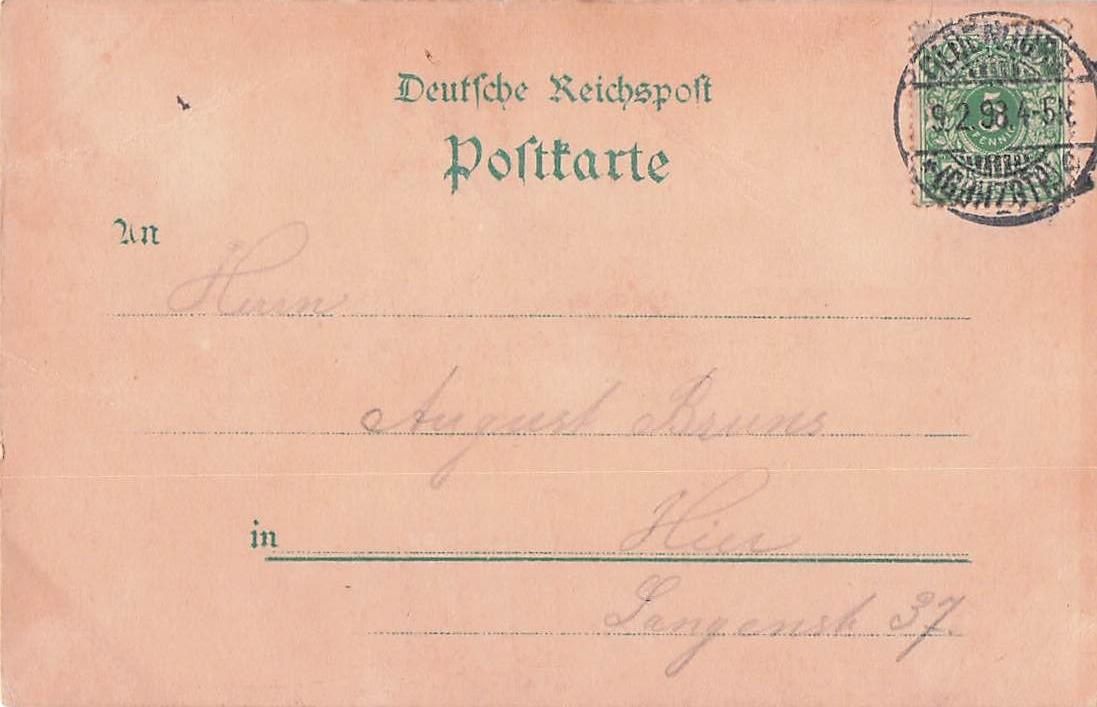 Deutsche Reichspost
Postkarte
An
Herrn
August Bruns
in Hier
Langenstr 37.
5
PFENNIG
9.2.98.4-5N.